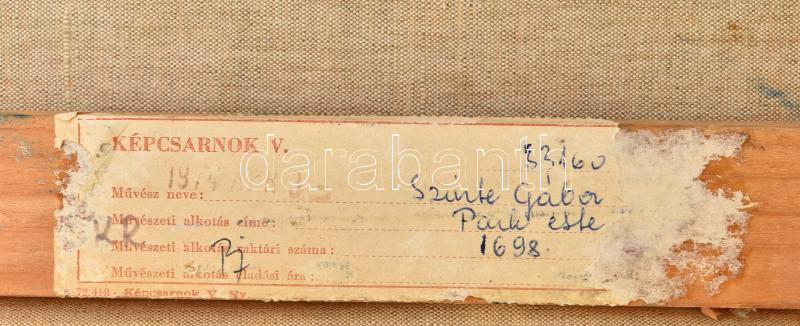 KÉPCSARNOK V.
Művész neve: Szinte Gábor
Művészeti alkotás címe: Park este
Művészeti alkotás raktári száma: 1698.
Művészeti alkotás eladási ára:
72.418 - Képcsarnok V. Ny.
darabanth